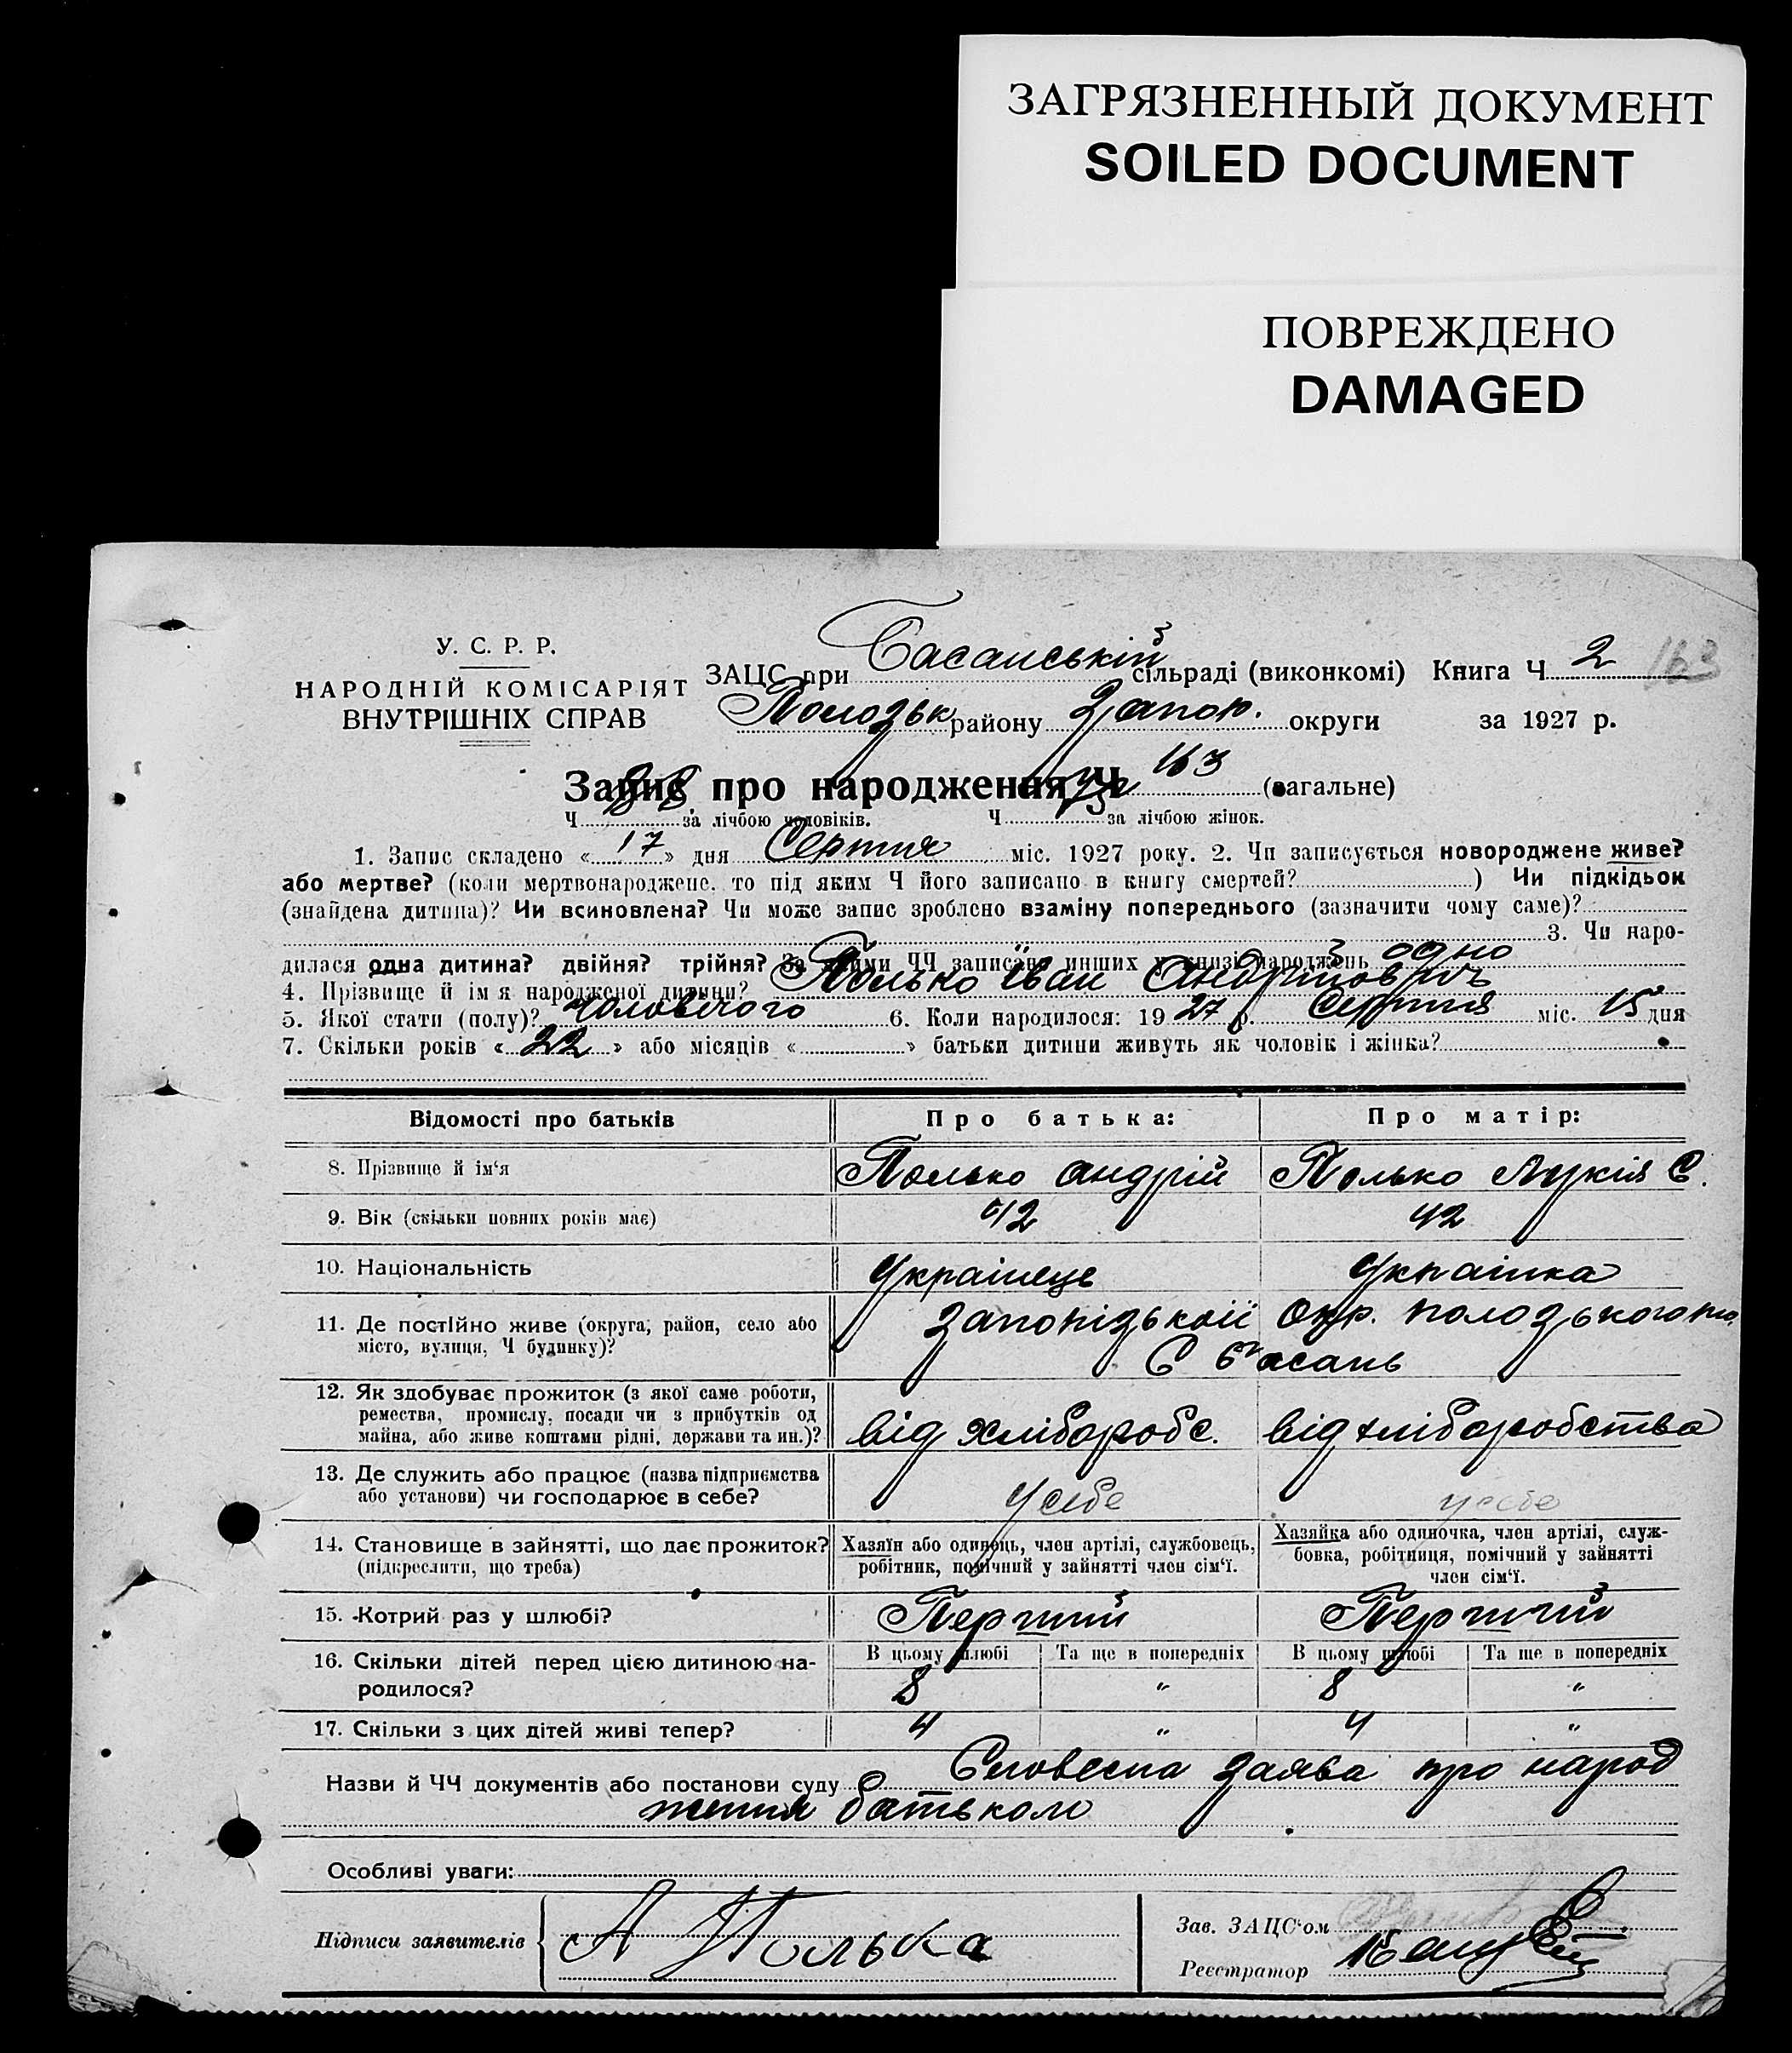 ЗАГРЯЗНЕННЫЙ ДОКУМЕНТ
SOILED DOCUMENT
ПОВРЕЖДЕНО
DAMAGED
У. С. Р. Р.
НАРОДНІЙ КОМІСАРІЯТ
ВНУТРІШНІХ СПРАВ
ЗАЦС при Басанській сільраді (виконкомі) Книга Ч 2 163
Полозьк району Запор. округи за 1927 р.
Запис про народження Ч 163 (загальне)
Ч 88 за лічбою чоловіків. Ч за лічбою жінок.
1. Запис складено « 17 » дня Серпня міс. 1927 року. 2. Чи записується новороджене живе?
або мертве? (коли мертвонароджене. то під яким Ч його записано в книгу смертей? ) Чи підкідьок
(знайдена дитина)? Чи всиновлена? Чи може запис зроблено взаміну попереднього (зазначити чому саме)?
3. Чи наро-
дилася одна дитина? двійня? трійня? За якими ЧЧ записано инших у книзі народжень одно
4. Прізвище й ім я народженої дитини? Полько Іван Андрійовичь
5. Якої стати (полу)? Чоловічого 6. Коли народилося: 19 27 р. Серпня міс. 15 дня
7. Скільки років « 22 » або місяців « » батьки дитини живуть як чоловік і жінка?
Відомості про батьків Про батька: Про матір:
8. Прізвище й ім'я Полько Андрій Полько Лукія Є.
9. Вік (скільки повних років має) 42 42
10. Національність Українець Українка
11. Де постійно живе (округа, район, село або Запорізької Окр. Полозького
місто, вулиця, Ч будинку)? С Басань
12. Як здобуває прожиток (з якої саме роботи,
ремества, промислу, посади чи з прибутків од
майна, або живе коштами рідні, держави та ин.)? від хлібороб с. від хліборобства
13. Де служить або працює (назва підприємства
або установи) чи господарює в себе? у себе у себе
14. Становище в зайнятті, що дає прожиток?
(підкреслити, що треба)
Хазяїн або одинець, член артілі, службовець,
робітник, помічний у зайнятті член сім'ї.
Хазяйка або одиночка, член артілі, служ-
бовка, робітниця, помічний у зайнятті
член сім'ї.
15. Котрий раз у шлюбі? Перший Перший
16. Скільки дітей перед цією дитиною на-
родилося?
В цьому шлюбі Та ще в попередніх В цьому шлюбі Та ще в попередніх
8 " 8 "
17. Скільки з цих дітей живі тепер? 4 " 4 "
Назви й ЧЧ документів або постанови суду Словесна заява про народ
ження батьком
Особливі уваги:
Підписи заявителів А Полька
Зав. ЗАЦС'ом
Реєстратор